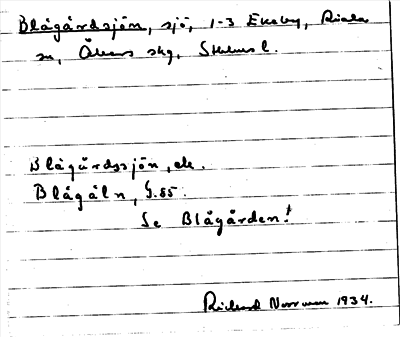 Blågårdsjön, sjö, 1-3 Ekeby, Riala
sn, Åkers skg, Sthlms l.
Blågårdssjön, ek.
Blågåln, G.55.
Se Blågården!
Rickard Norrman 1934.